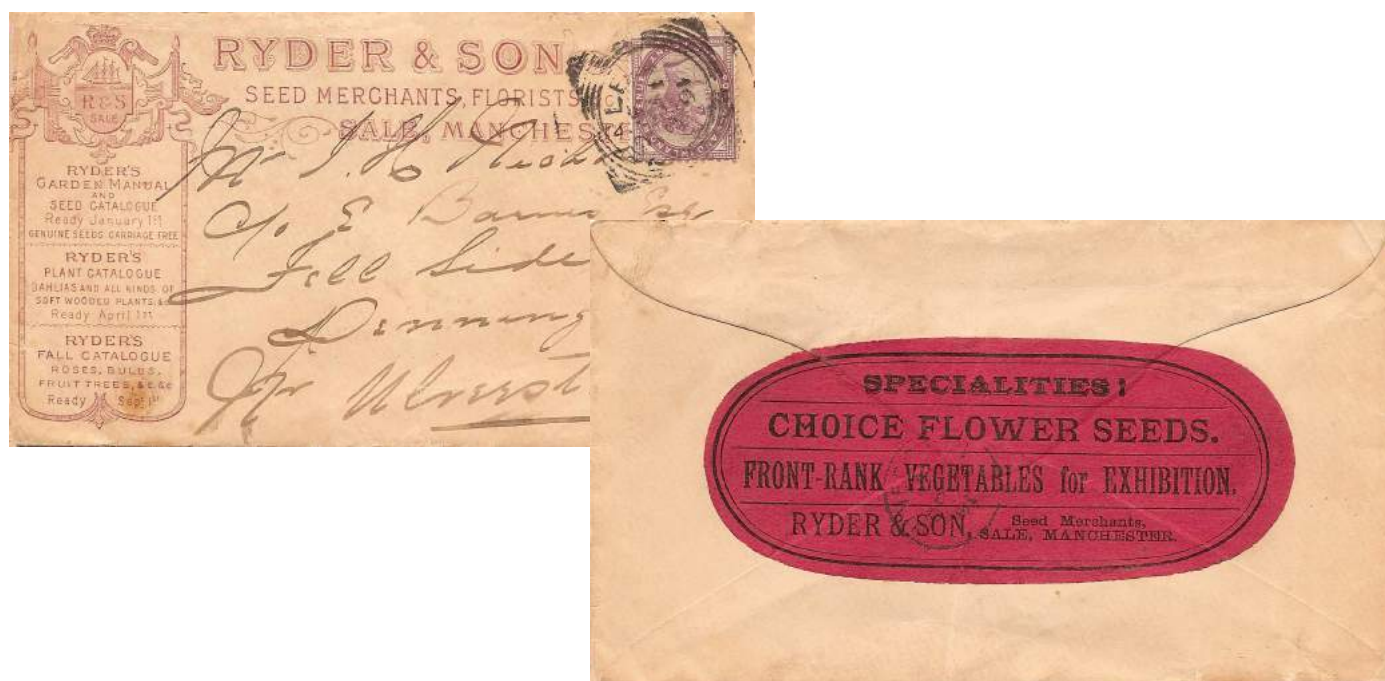 RYDER & SON
SEED MERCHANTS, FLORISTS
SALE, MANCHESTE
R & S
SALE
RYDER'S
GARDEN MANUAL
AND
SEED CATALOGUE
Ready January 1st
GENUINE SEEDS CARRIAGE FREE
RYDER'S
PLANT CATALOGUE
DAHLIAS AND ALL KINDS OF
SOFT WOODED PLANTS &c
Ready April 1st
RYDER'S
FALL CATALOGUE
ROSES, BULBS,
FRUIT TREES, &c &c
Ready Sept 1st
Mr J. H
C/o E Barnes Esq
Fell Side
Nr Ulverst
SPECIALITIES:
CHOICE FLOWER SEEDS.
FRONT-RANK VEGETABLES for EXHIBITION,
RYDER & SON, Seed Merchants,
SALE, MANCHESTER.